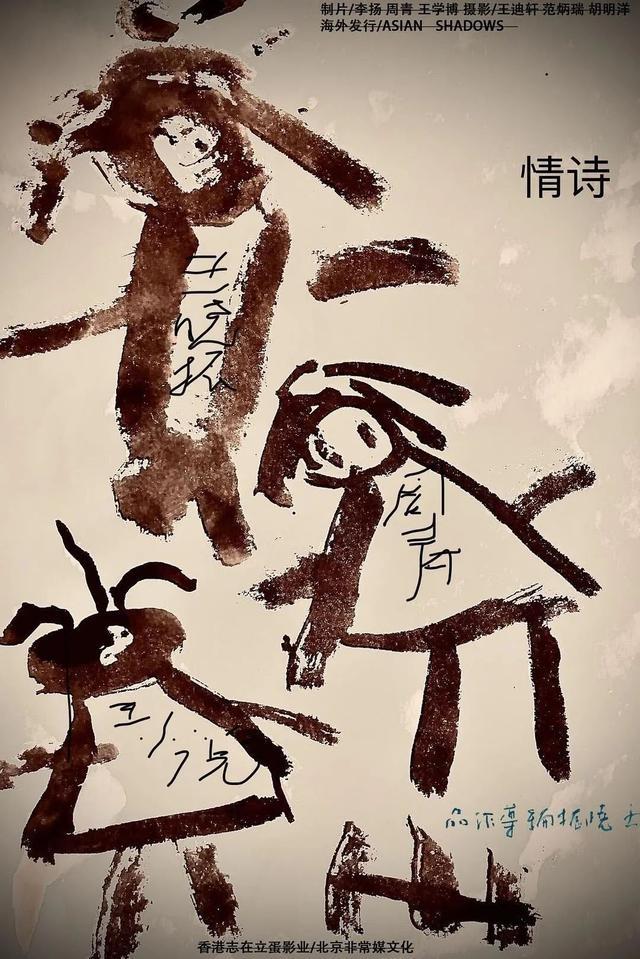 制片/李扬 周青 王学博 摄影/王迪轩 范炳瑞 胡明洋
海外发行/ASIAN—SHADOWS—
情诗
王晓振
周青
王曉振編導作品
香港志在立蛋影业/北京非常媒文化